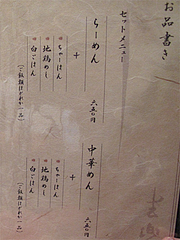 お品書き
セットメニュー
らーめん 六五〇円
+
ちゃーはん
地鶏めし
白ごはん
(ご飯類はどれか一品)
中華めん 六五〇円
+
ちゃーはん
地鶏めし
白ごはん
(ご飯類はどれか一品)